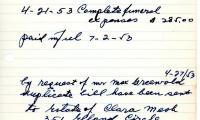 4-21-53 Complete funeral
expenses $ 285.00
paid in full 7-2-53
4-27/53
by request of mr max Greenwald
duplicate bill have been sent
to Estate of Clara Mesh
351 Island Circle